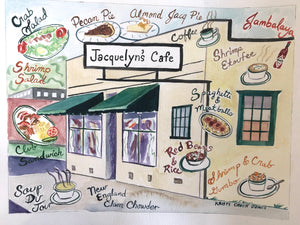 Crab
Salad
Pecan Pie
Almond Jacq Pie
Coffee
Jambalaya
Shrimp
Salad
Jacquelyn's Cafe
Shrimp
Etouffee
Spaghetti
&
Meatballs
Club
Sandwich
Red Beans
&
Rice
Shrimp & Crab
Gumbo
Soup
Du
Jour
New
England
Clam Chowder